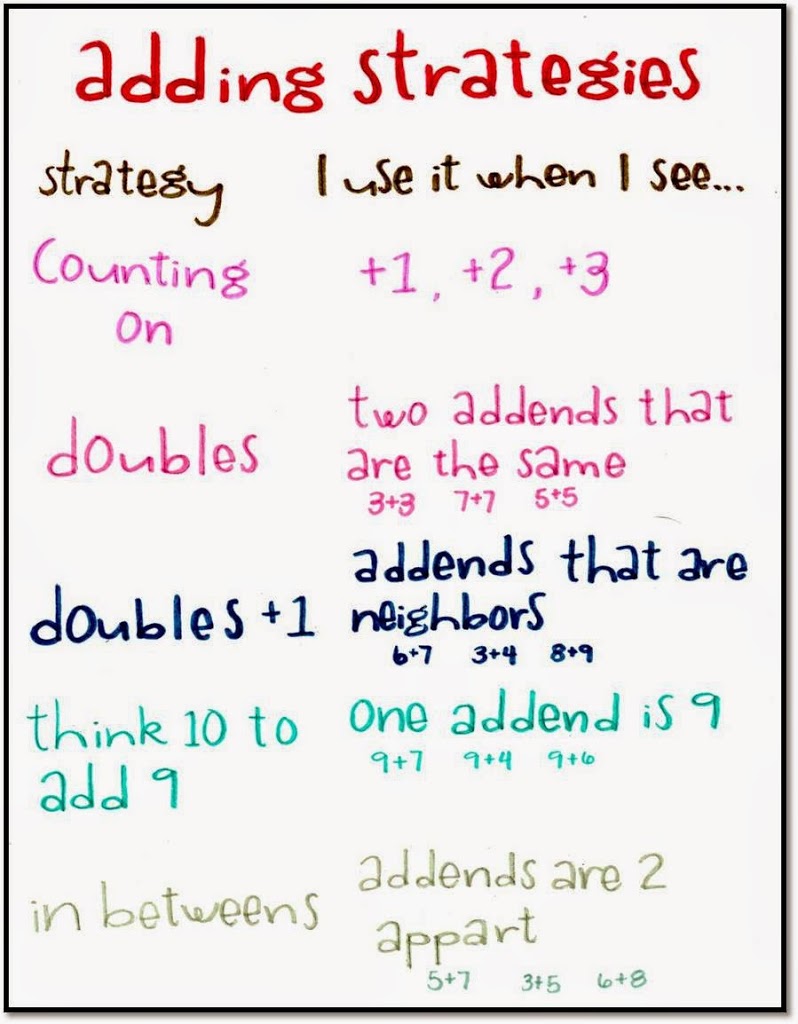 adding strategies
strategy I use it when I see...
Counting on +1, +2, +3
doubles
two addends that
are the same
3+3 7+7 5+5
doubles +1
addends that are
neighbors
6+7 3+4 8+9
think 10 to
add 9
one addend is 9
9+7 9+4 9+6
in betweens
addends are 2
appart
5+7 3+5 6+8